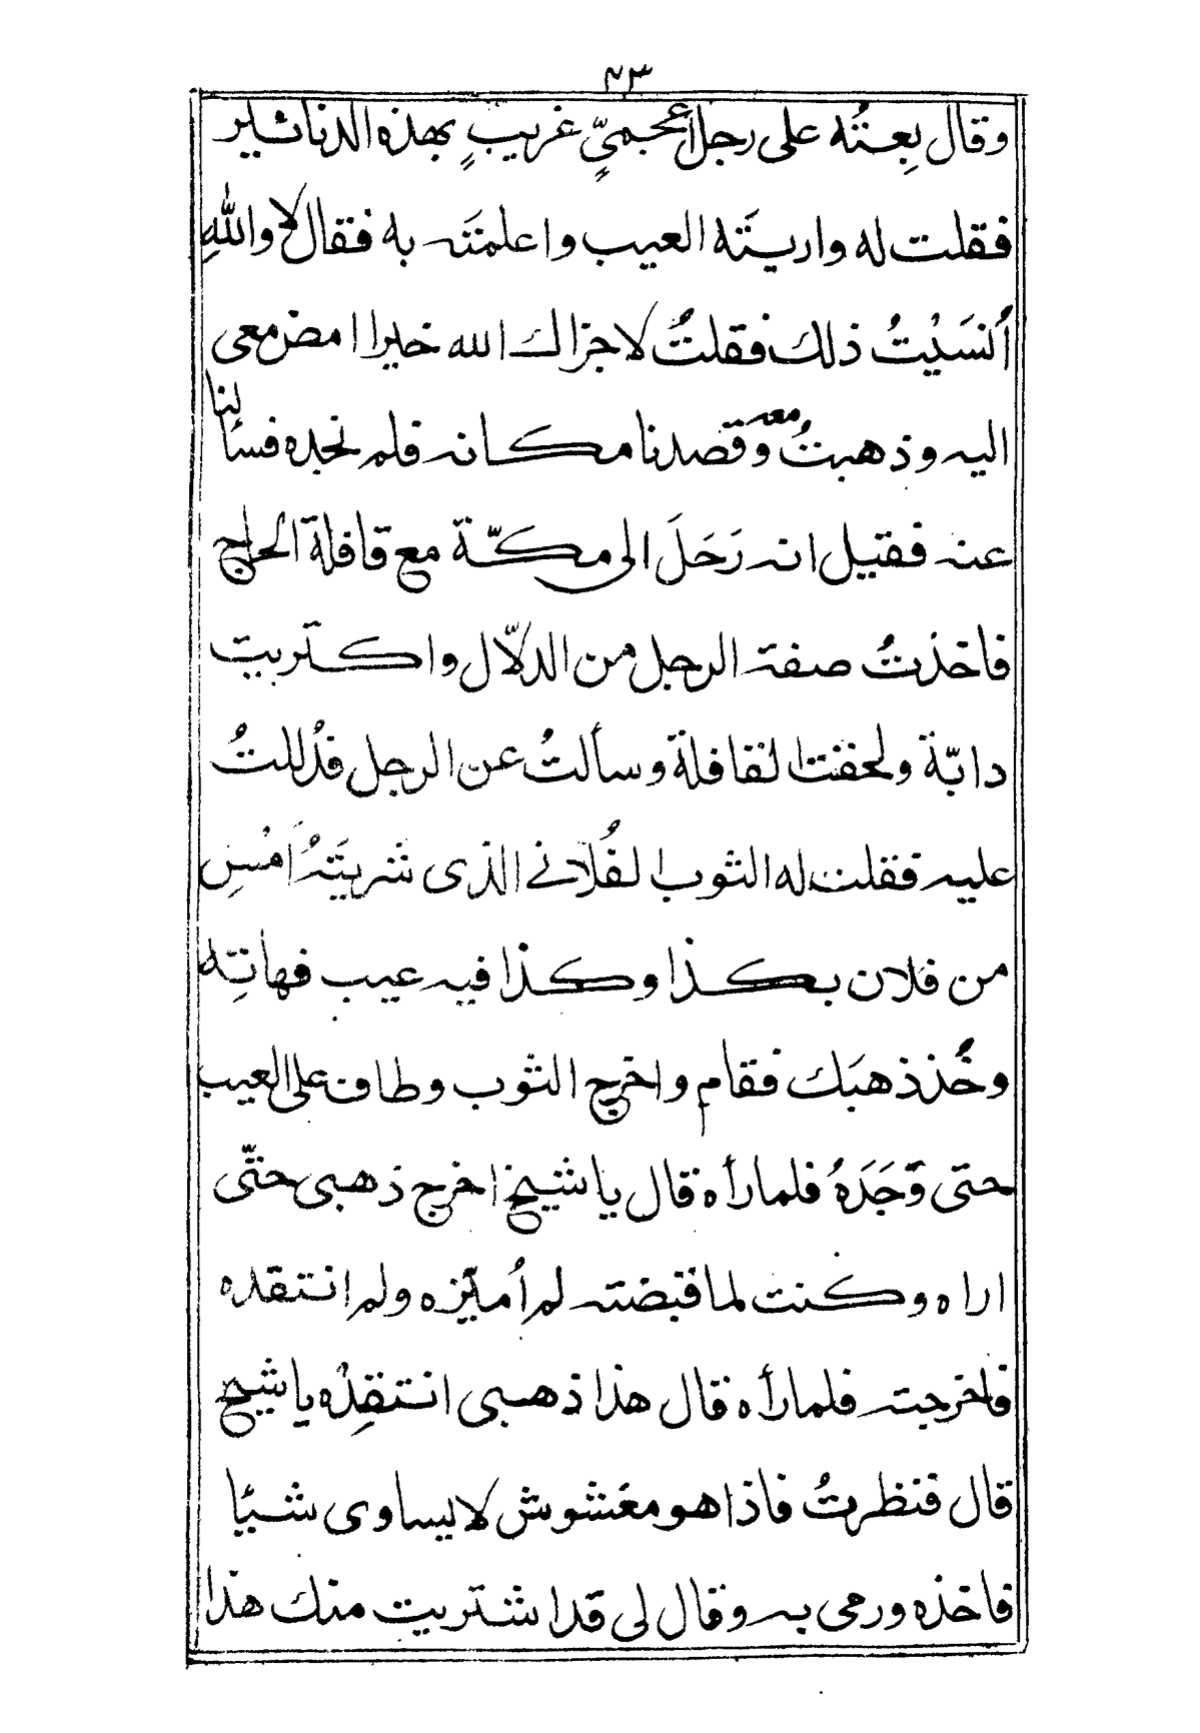 ٤٣
وقال بِعتُه على رجل أعجميٍّ غريبٍ بهذه الدنانير
فقلت له واريتَه العيب واعلمتَه به فقال لا واللهِ
أُنسَيْتُ ذلك فقلتُ لا جزاك الله خيرا امض معى
اليه وذهبتُ معه وقصدنا مكانه فلم نجده فسألنا
عنه فقيل انه رَحَلَ الى مكّة مع قافلة الحاج
فاخذتُ صفة الرجل من الدلّال واكتريت
دابّة ولحقت القافلة وسألتُ عن الرجل فدُللتُ
عليه فقلت له الثوب الفُلانى الذى شريتَهُ اَمْسِ
من فلان بكذا وكذا فيه عيب فهاتِه
وخُذ ذهبَك فقام واخرج الثوب وطاف على العيب
حتى وَجَدَهُ فلما رأه قال يا شيخ اخرج ذهبى حتّى
اراه وكنت لما قبضته لم أُميّزه ولم انتقده
فاخرجته فلما رأه قال هذا ذهبى انتقِدْه يا شيخ
قال فنظرتُ فاذا هو مغشوش لا يساوى شيئًا
فاخذه ورمى به وقال لى قد اشتريت منك هذا